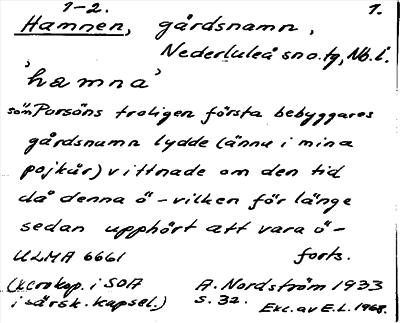 1-2. 1.
Hamnen, gårdsnamn,
Nederluleå sn o. tg, Nb. l.
'hamna'
som Porsöns troligen första bebyggares
gårdsnamn lydde (ännu i mina
pojkår) vittnade om den tid
då denna ö - vilken för länge
sedan upphört att vara ö -
ULMA 6661 forts.
(xerokop. i SOA A. Nordström 1933
i särsk. kapsel.) s. 32. Exc. av E.L. 1968.